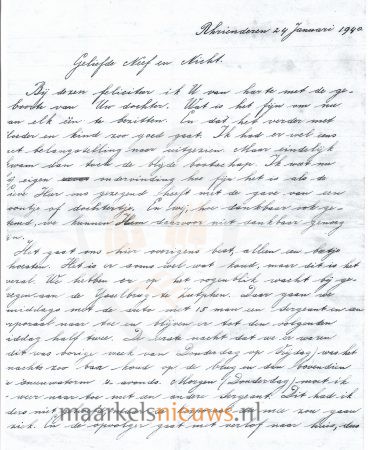 Rhienderen 24 Januari 1940
Geliefde Neef en Nicht.
Bij dezen feliciteer ik U van harte met de ge-
boorte van Uw dochter. Wat is het fijn om nu
an elk één te bezitten. En dat het verder met
moeder en kind zoo goed gaat. Ik had er wel eens
met belangstelling naar uitgezien. Maar eindelijk
kwam dan toch de blijde boodschap. Ik weet nu
bij eigen ondervinding hoe fijn het is als de
Lieve Heer ons gezegend heeft met de gave van een
zoontje of dochtertje. En wij, hoe dankbaar ook ge-
stemd, we kunnen Hem daarvoor niet dankbaar genoeg
zijn.
Het gaat ons hier overigens best, alleen een beetje
hoesten. Het is er soms wel wat koud, maar dit is het
overal. We hebben er op het oogenblik wacht bij ge-
kregen aan de IJselbrug te Zutphen. Daar gaan we
middags met de auto met 15 man en Sergeant en
korporaal naar toe en blijven er tot den volgenden
middag half twee. De eerste nacht dat we er waren
dit was vorige week van Donderdag op Vrijdag, was het
nachts zoo koud op de brug en dan bovendien
sneeuwstorm 's avonds. Morgen (Donderdag) moet ik
weer naar toe met een andere Sergeant. Dit had ik
niet mee zou gaan
ziek. En de opvolger gaat met verlof naar huis, dus
maarkelsnieuws.nl